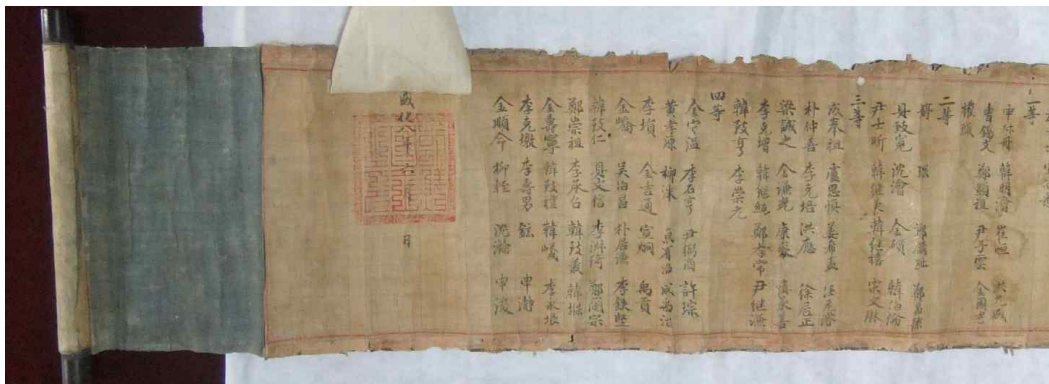 一等
申叔舟 韓明澮 崔恒 洪允成
曺錫文 鄭顯祖 尹子雲 金國光
權瑊
二等
婷 琛 鄭麟趾 鄭昌孫
具致寬 沈澮 金礩 韓伯倫
尹士昕 韓繼美 韓繼禧 宋文琳
三等
成奉祖 盧思愼 姜希孟 任元濬
朴仲善 李克培 洪應 徐居正
梁誠之 金謙光 康袞 愼承善
李克增 韓繼純 鄭孝常 尹繼謙
韓致亨 李崇元
四等
金守溫 李石亨 尹弼商 許琮
黃孝源 柳洙 魚有沼 咸禹治
李塤 金吉通 宣烱 禹貢
金嶠 吳伯昌 朴居謙 李鐵堅
韓致仁 具文信 李淑琦 鄭蘭宗
鄭崇祖 李承召 韓致義 韓堡
金壽寧 韓致禮 韓嶬 李永垠
李克墩 李壽男 鉉 申瀞
金順命 柳輊 沈瀚 申浚
成化 月